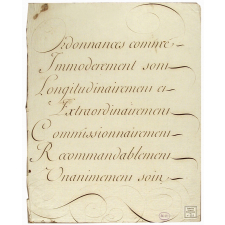 Ordonnances comme
Immoderement sont
Longitudinairement et
Extraordinairement
Commissionnairement
Recommandablement
Unanimement soin